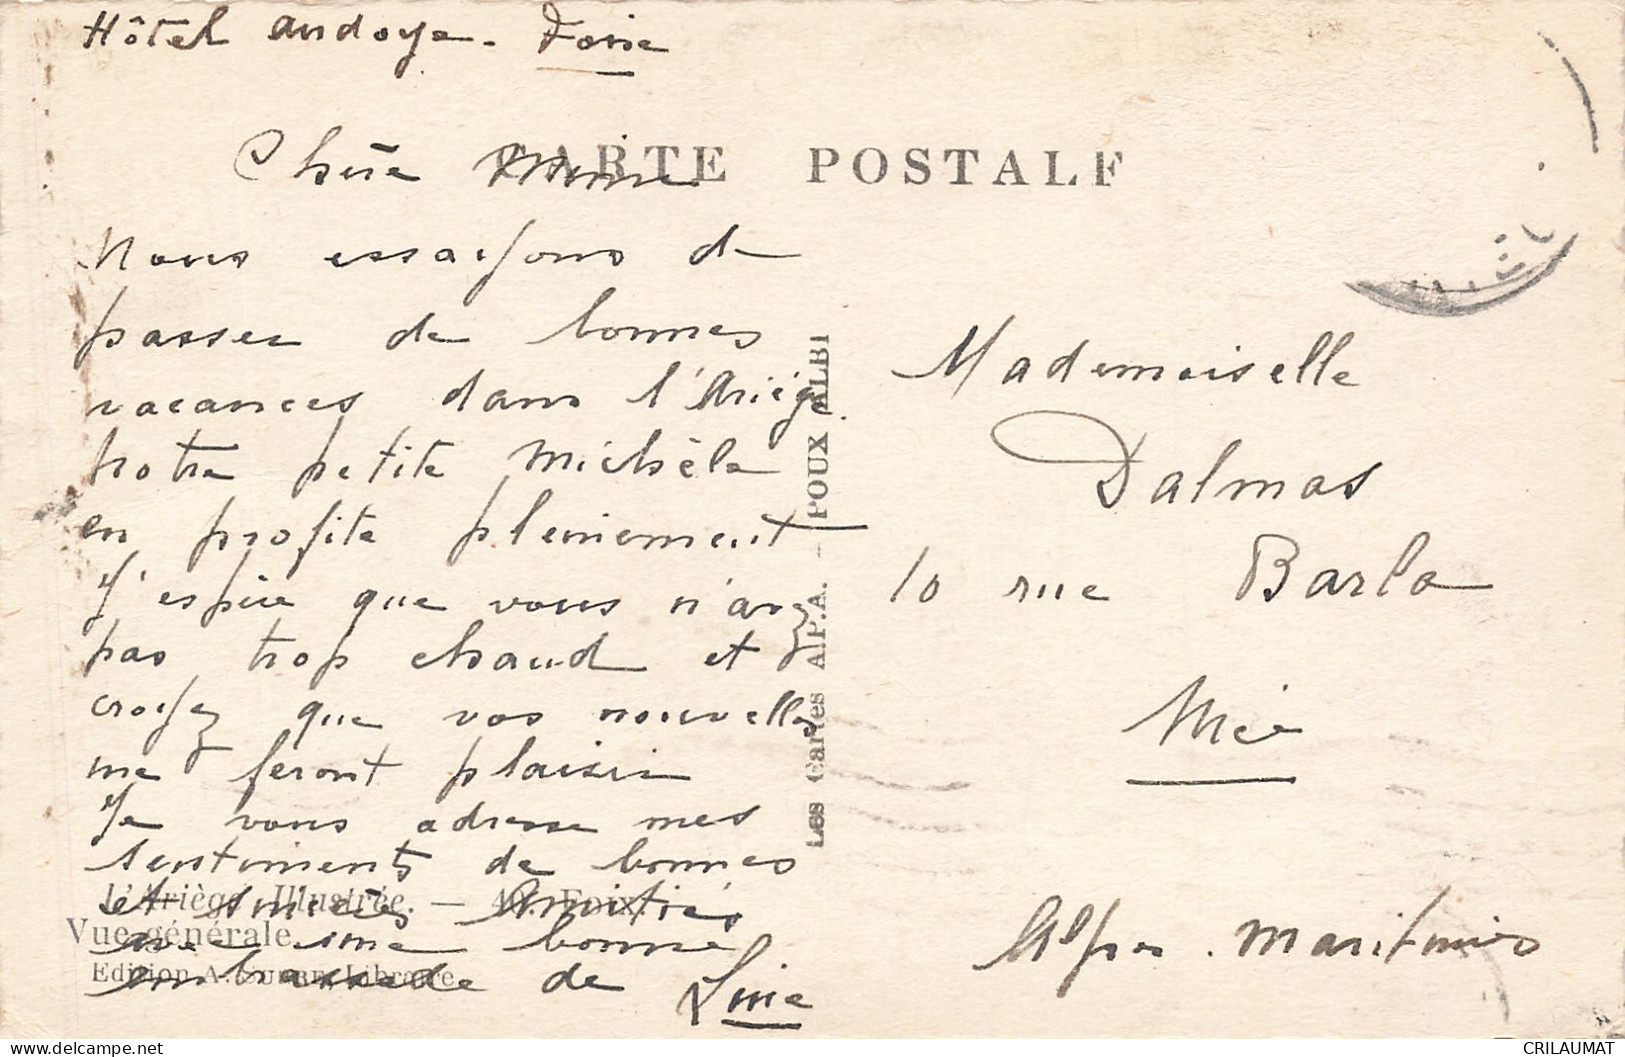 Hôtel Andoye. Foix
CARTE POSTALE
Chère
Nous essayons de
passer de bonnes
vacances dans l'Ariège
notre petite Michèle
en profite pleinement
J'espère que vous n'avez
pas trop chaud et
croyez que vos nouvelles
me feront plaisir
Je vous adresse mes
sentiments de bonnes
et sincères Amitiés
avec une bonne
embrassade de
L'Ariège Illustrée. — Foix
Vue générale.
Edition A. Libraire
Les Cartes A.P.A. - POUX ALBI
Mademoiselle
Dalmas
10 rue Barla
Nice
Alpes. Maritimes
delcampe.net
CRILAUMAT